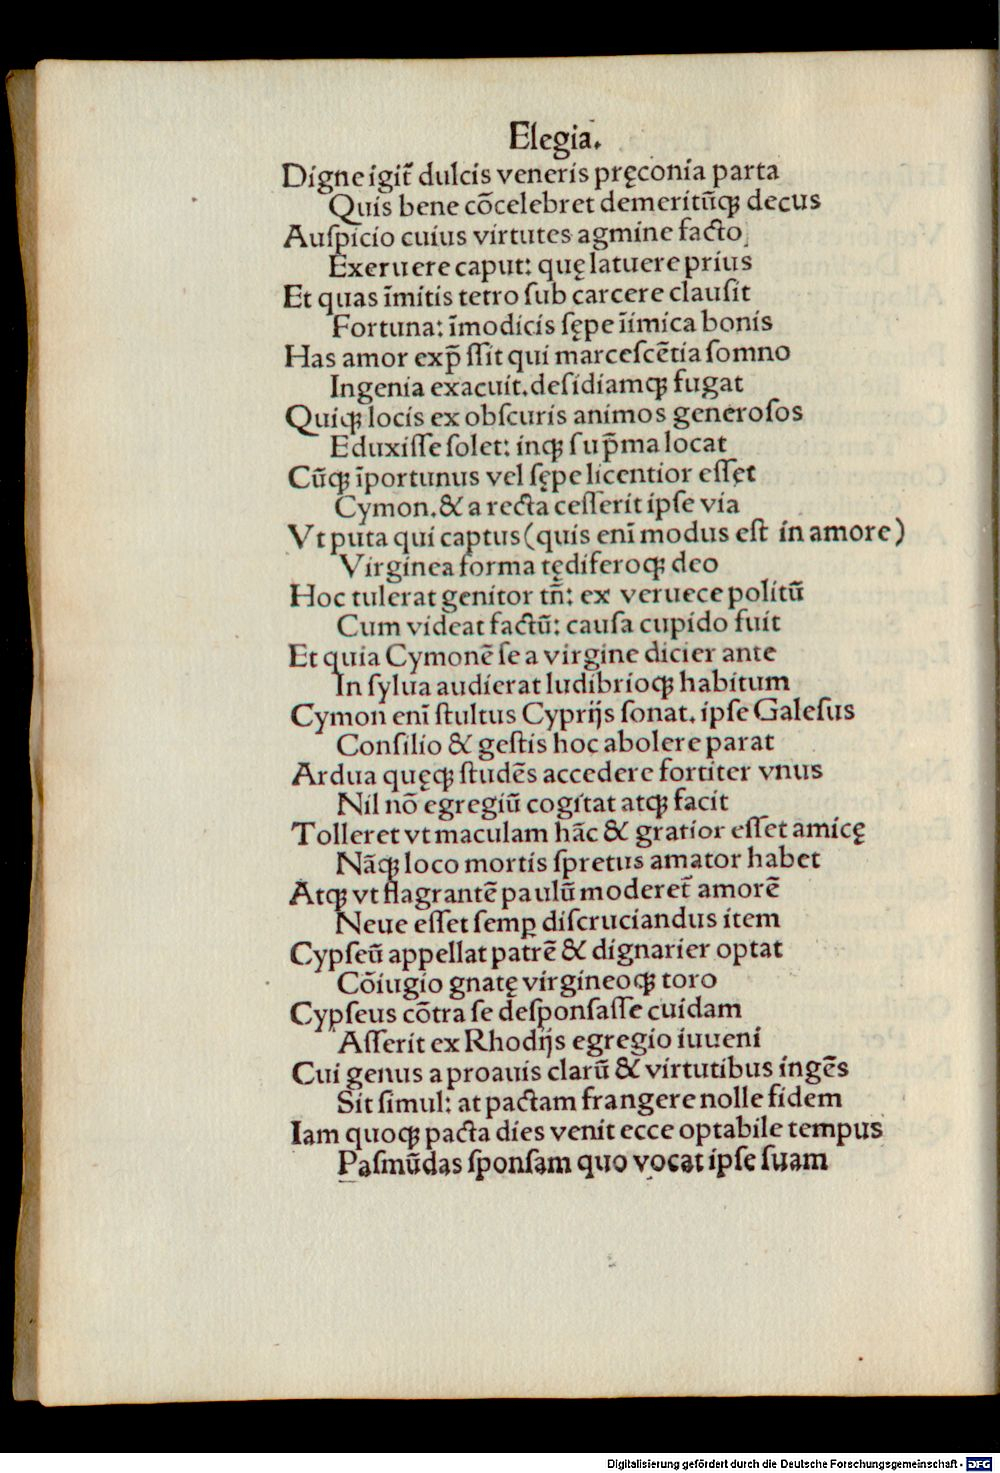 Elegia.
Digne igit᷑ dulcis veneris pręconia parta
Quis bene cōcelebret demeritūqꝫ decus
Auſpicio cuius virtutes agmine facto
Exeruere caput: quę latuere prius
Et quas īmitis tetro ſub carcere clauſit
Fortuna: īmodicis ſępe īimica bonis
Has amor exp̄ ſſit qui marceſcētia ſomno
Ingenia exacuit. deſidiamqꝫ fugat
Quiqꝫ locis ex obſcuris animos generoſos
Eduxiſſe ſolet: inqꝫ ſup̄ma locat
Cūqꝫ īportunus vel ſępe licentior eſſęt
Cymon. & a recta ceſſerit ipſe via
Vt puta qui captus (quis enī modus eſt in amore)
Virginea forma tędiferoqꝫ deo
Hoc tulerat genitor tn̄: ex veruece politū
Cum videat factū: cauſa cupido fuit
Et quia Cymonē ſe a virgine dicier ante
In ſylua audierat ludibrioqꝫ habitum
Cymon enī ſtultus Cyprijs ſonat. ipſe Galeſus
Conſilio & geſtis hoc abolere parat
Ardua quęqꝫ ſtudēs accedere fortiter vnus
Nil nō egregiū cogitat atqꝫ facit
Tolleret vt maculam hāc & gratior eſſet amicę
Nāqꝫ loco mortis ſpretus amator habet
Atqꝫ vt flagrantē paulū moderet᷑ amorē
Neue eſſet ſemꝑ diſcruciandus item
Cypſeū appellat patrē & dignarier optat
Cōiugio gnatę virgineoqꝫ toro
Cypſeus cōtra ſe deſponſaſſe cuidam
Aſſerit ex Rhodijs egregio iuueni
Cui genus a proauis clarū & virtutibus ingēs
Sit ſimul: at pactam frangere nolle fidem
Iam quoqꝫ pacta dies venit ecce optabile tempus
Paſmūdas ſponſam quo vocat ipſe ſuam
Digitalisierung gefördert durch die Deutsche Forschungsgemeinschaft - DFG